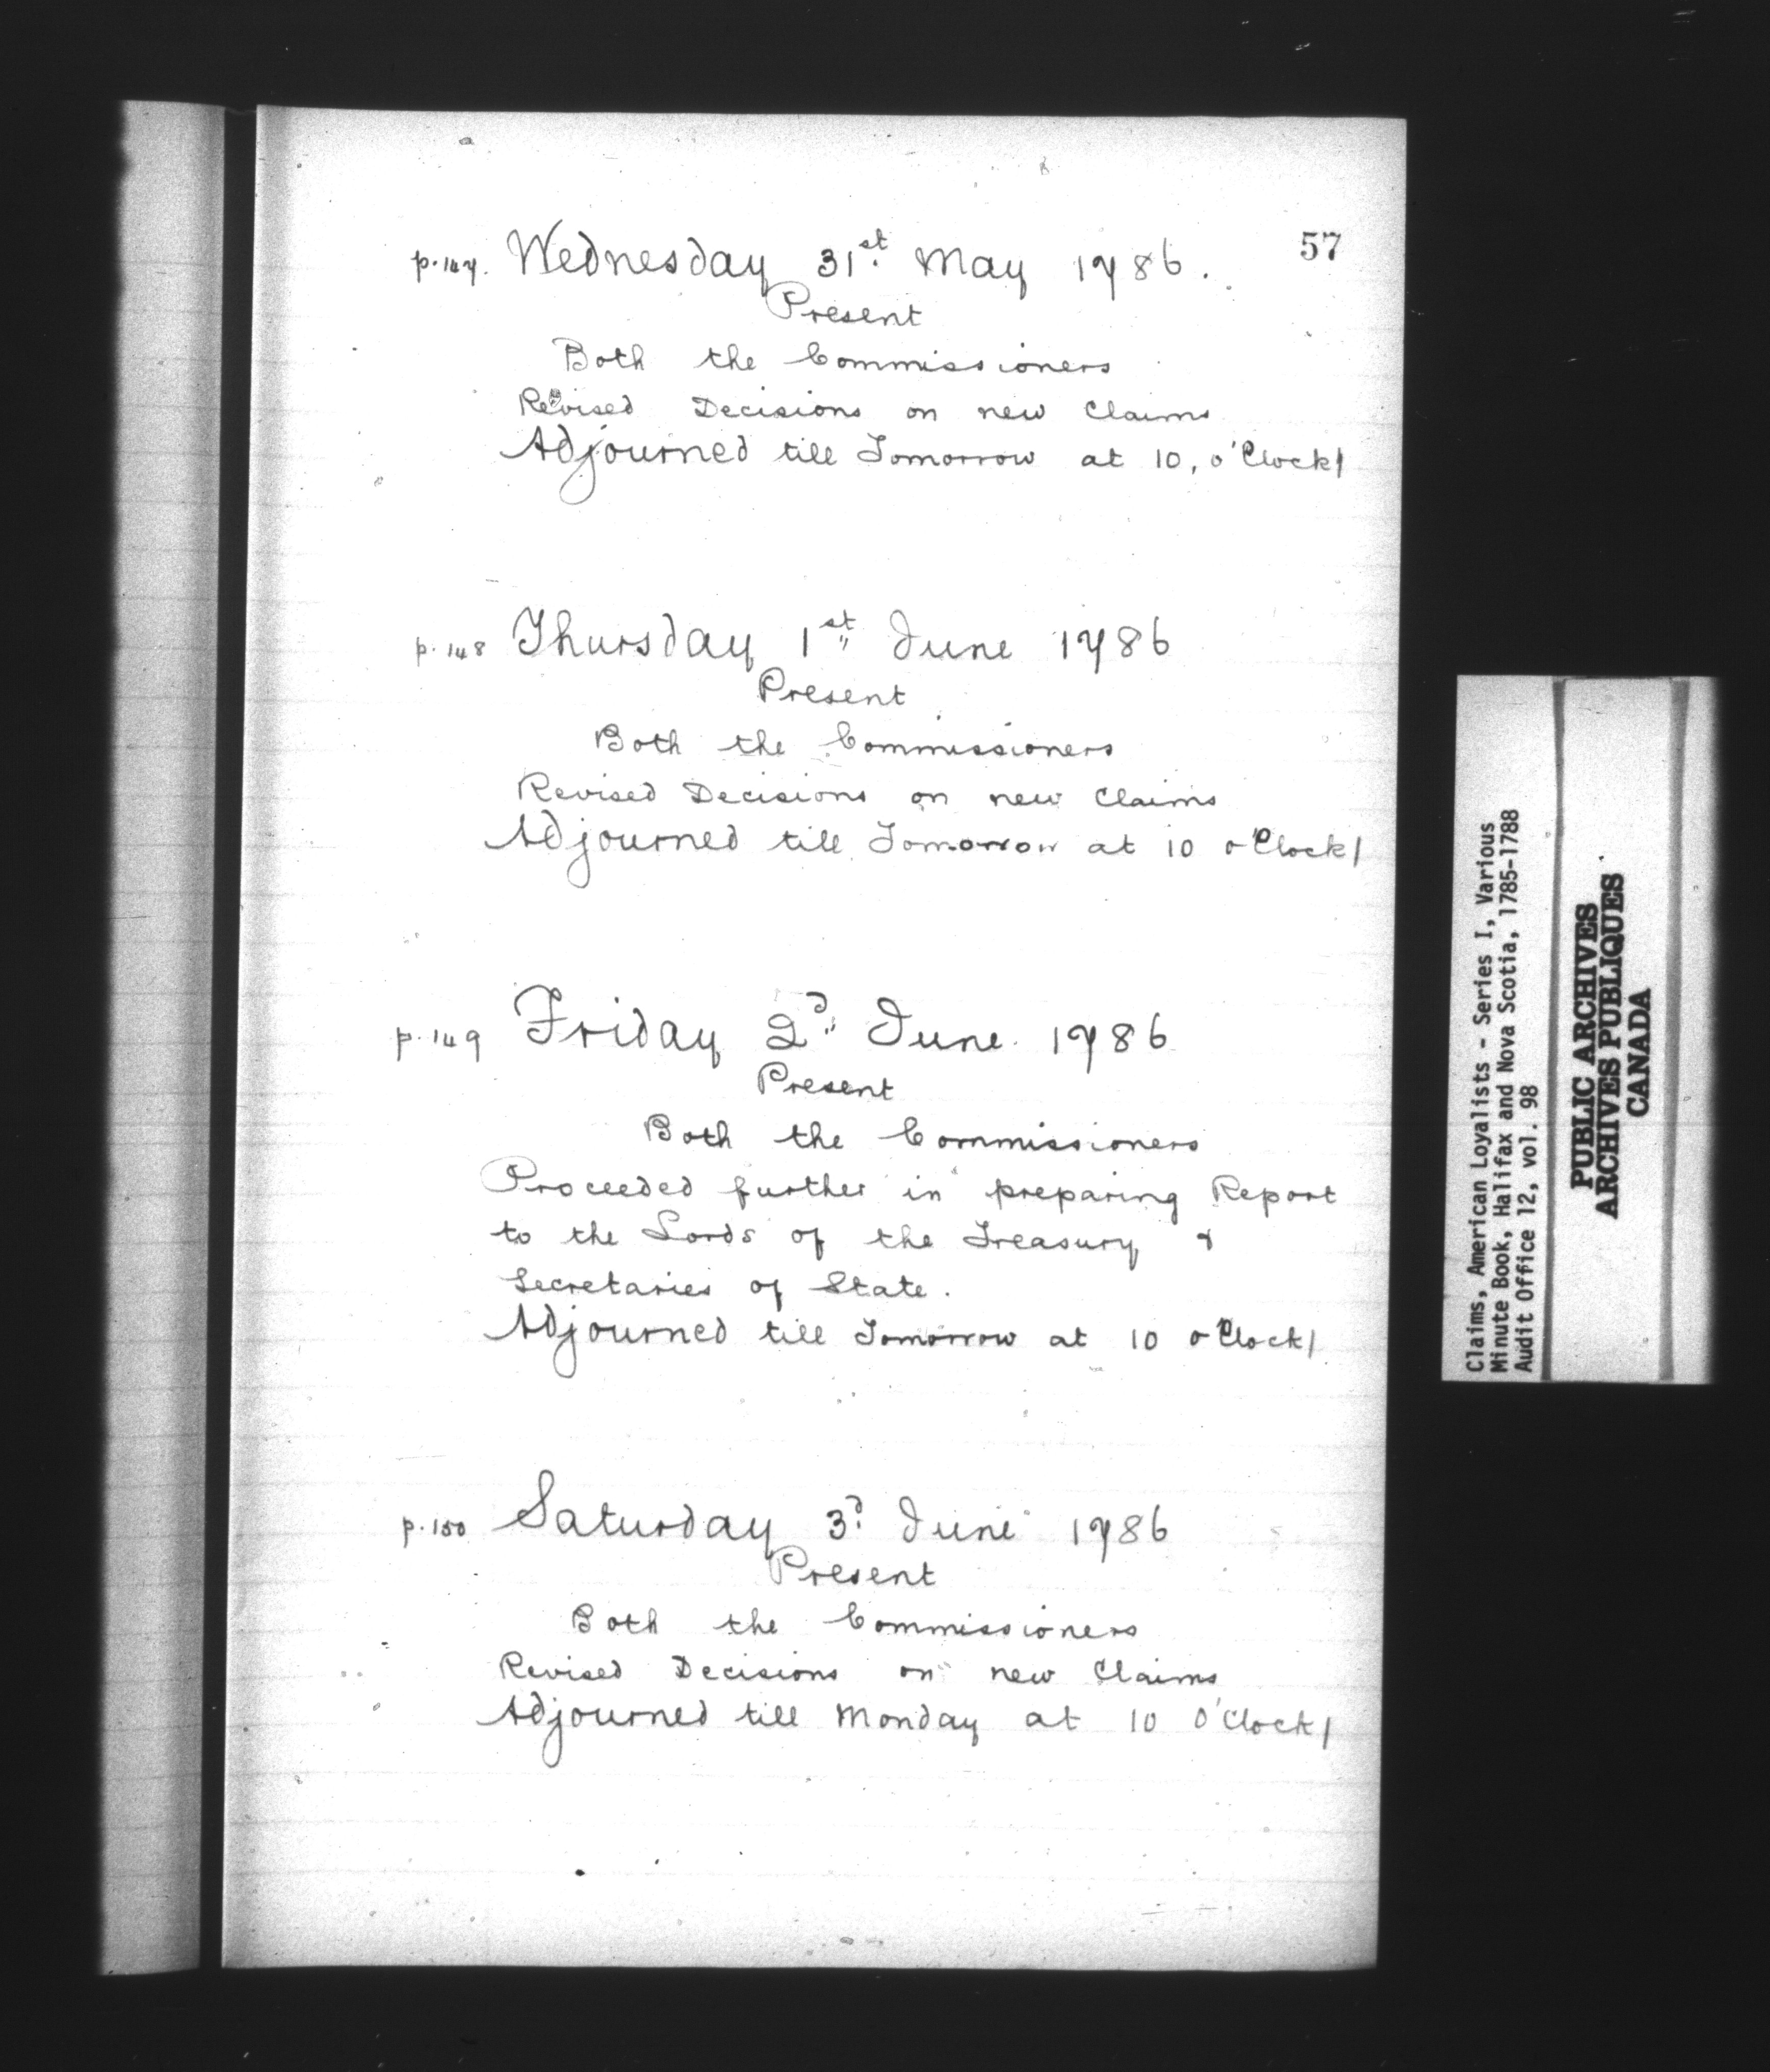 57
p. 147. Wednesday 31st. May 1786.
Present
Both the Commissioners
Revised Decisions on new Claims
Adjourned till Tomorrow at 10, o'Clock/
p. 148 Thursday 1st" June 1786
Present
Both the Commissioners
Revised Decisions on new Claims
Adjourned till Tomorrow at 10 o'Clock/
p. 149 Friday 2d" June 1786
Present
Both the Commissioners
Proceeded further in preparing Report
to the Lords of the Treasury &
Secretaries of State.
Adjourned till Tomorrow at 10 o'Clock/
p. 150 Saturday 3d. June 1786
Present
Both the Commissioners
Revised Decisions on new Claims
Adjourned till Monday at 10 O'Clock/
Claims, American Loyalists - Series I, Various
Minute Book, Halifax and Nova Scotia, 1785-1788
Audit Office 12, vol. 98
PUBLIC ARCHIVES
ARCHIVES PUBLIQUES
CANADA